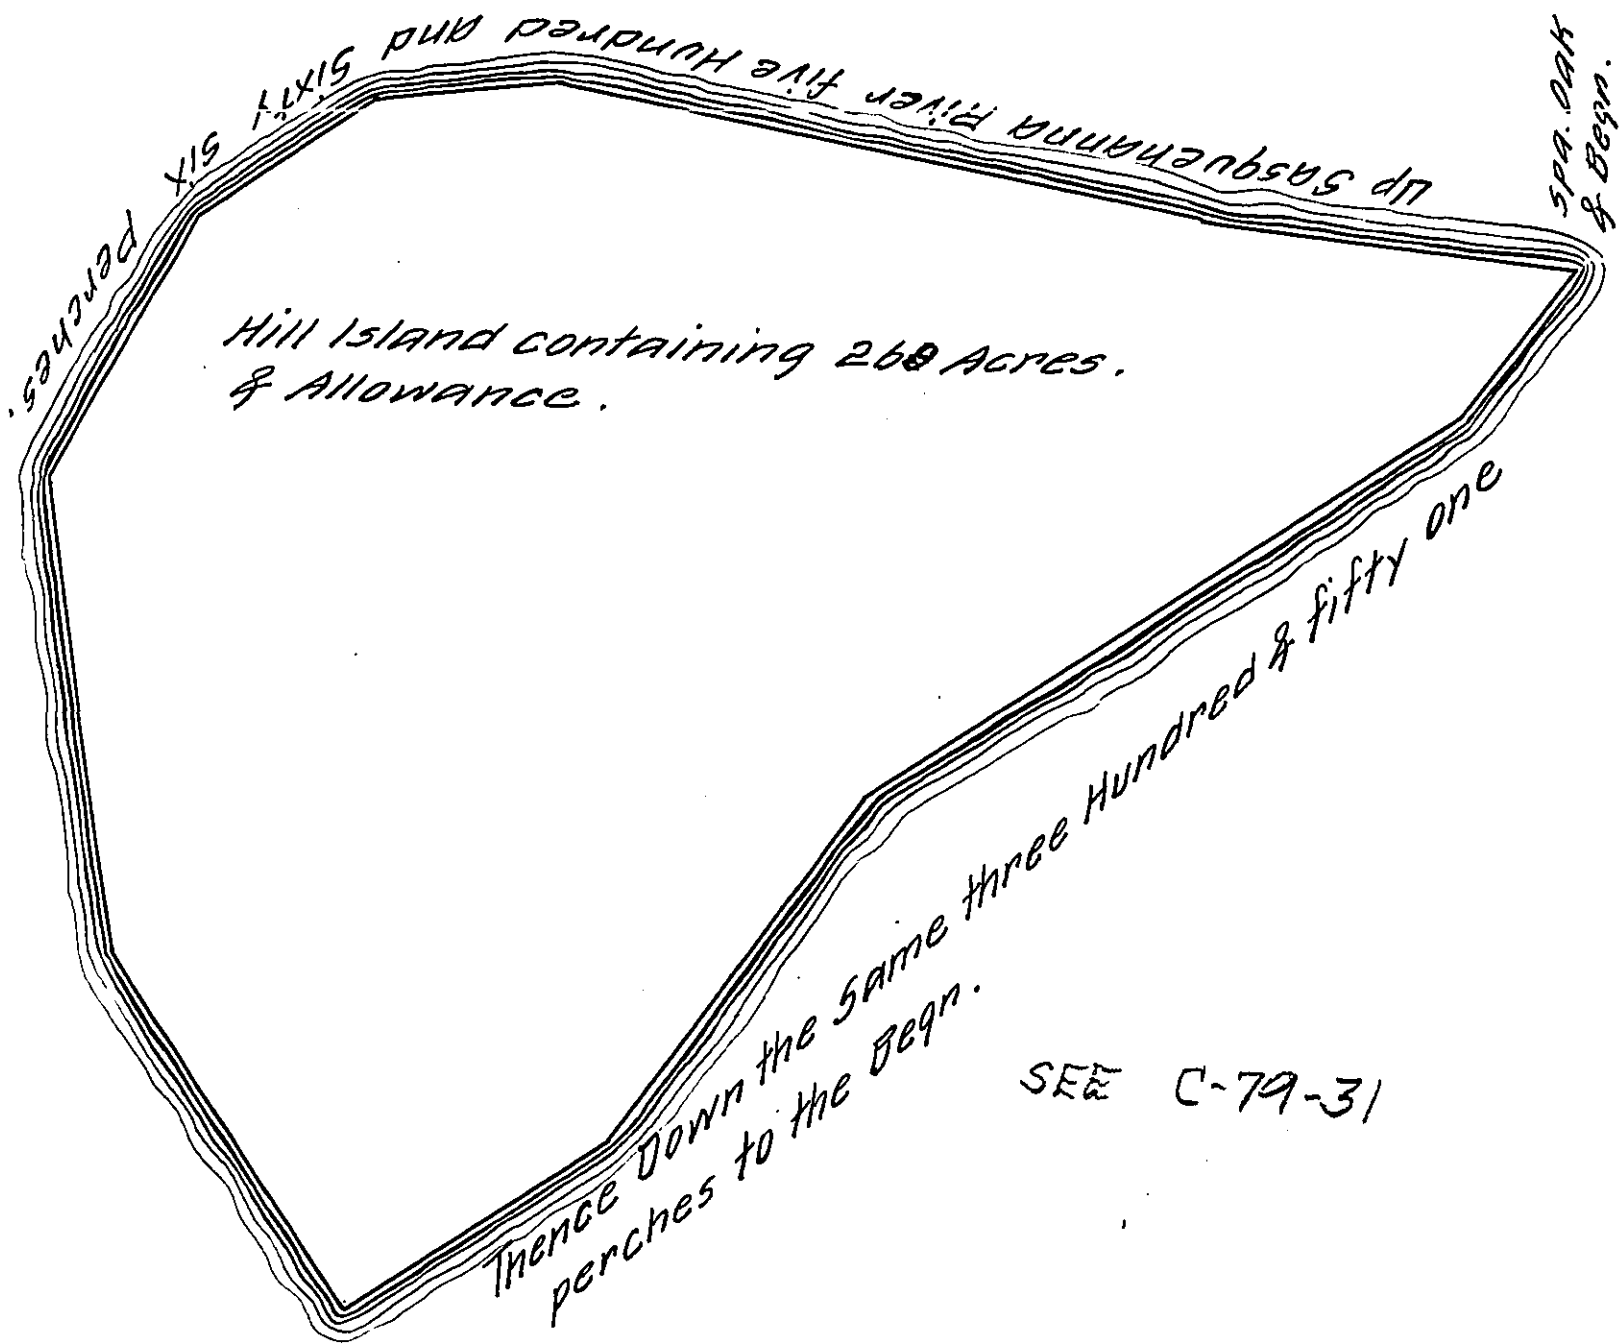 spa. Oak
& Begn.
Up Sasquehanna River five Hundred and Sixty six perches.
Hill Island containing Acres.
& Allowance.
Thence Down the Same three Hundred & fifty one
perches to the Begn.
SEE C-79-31